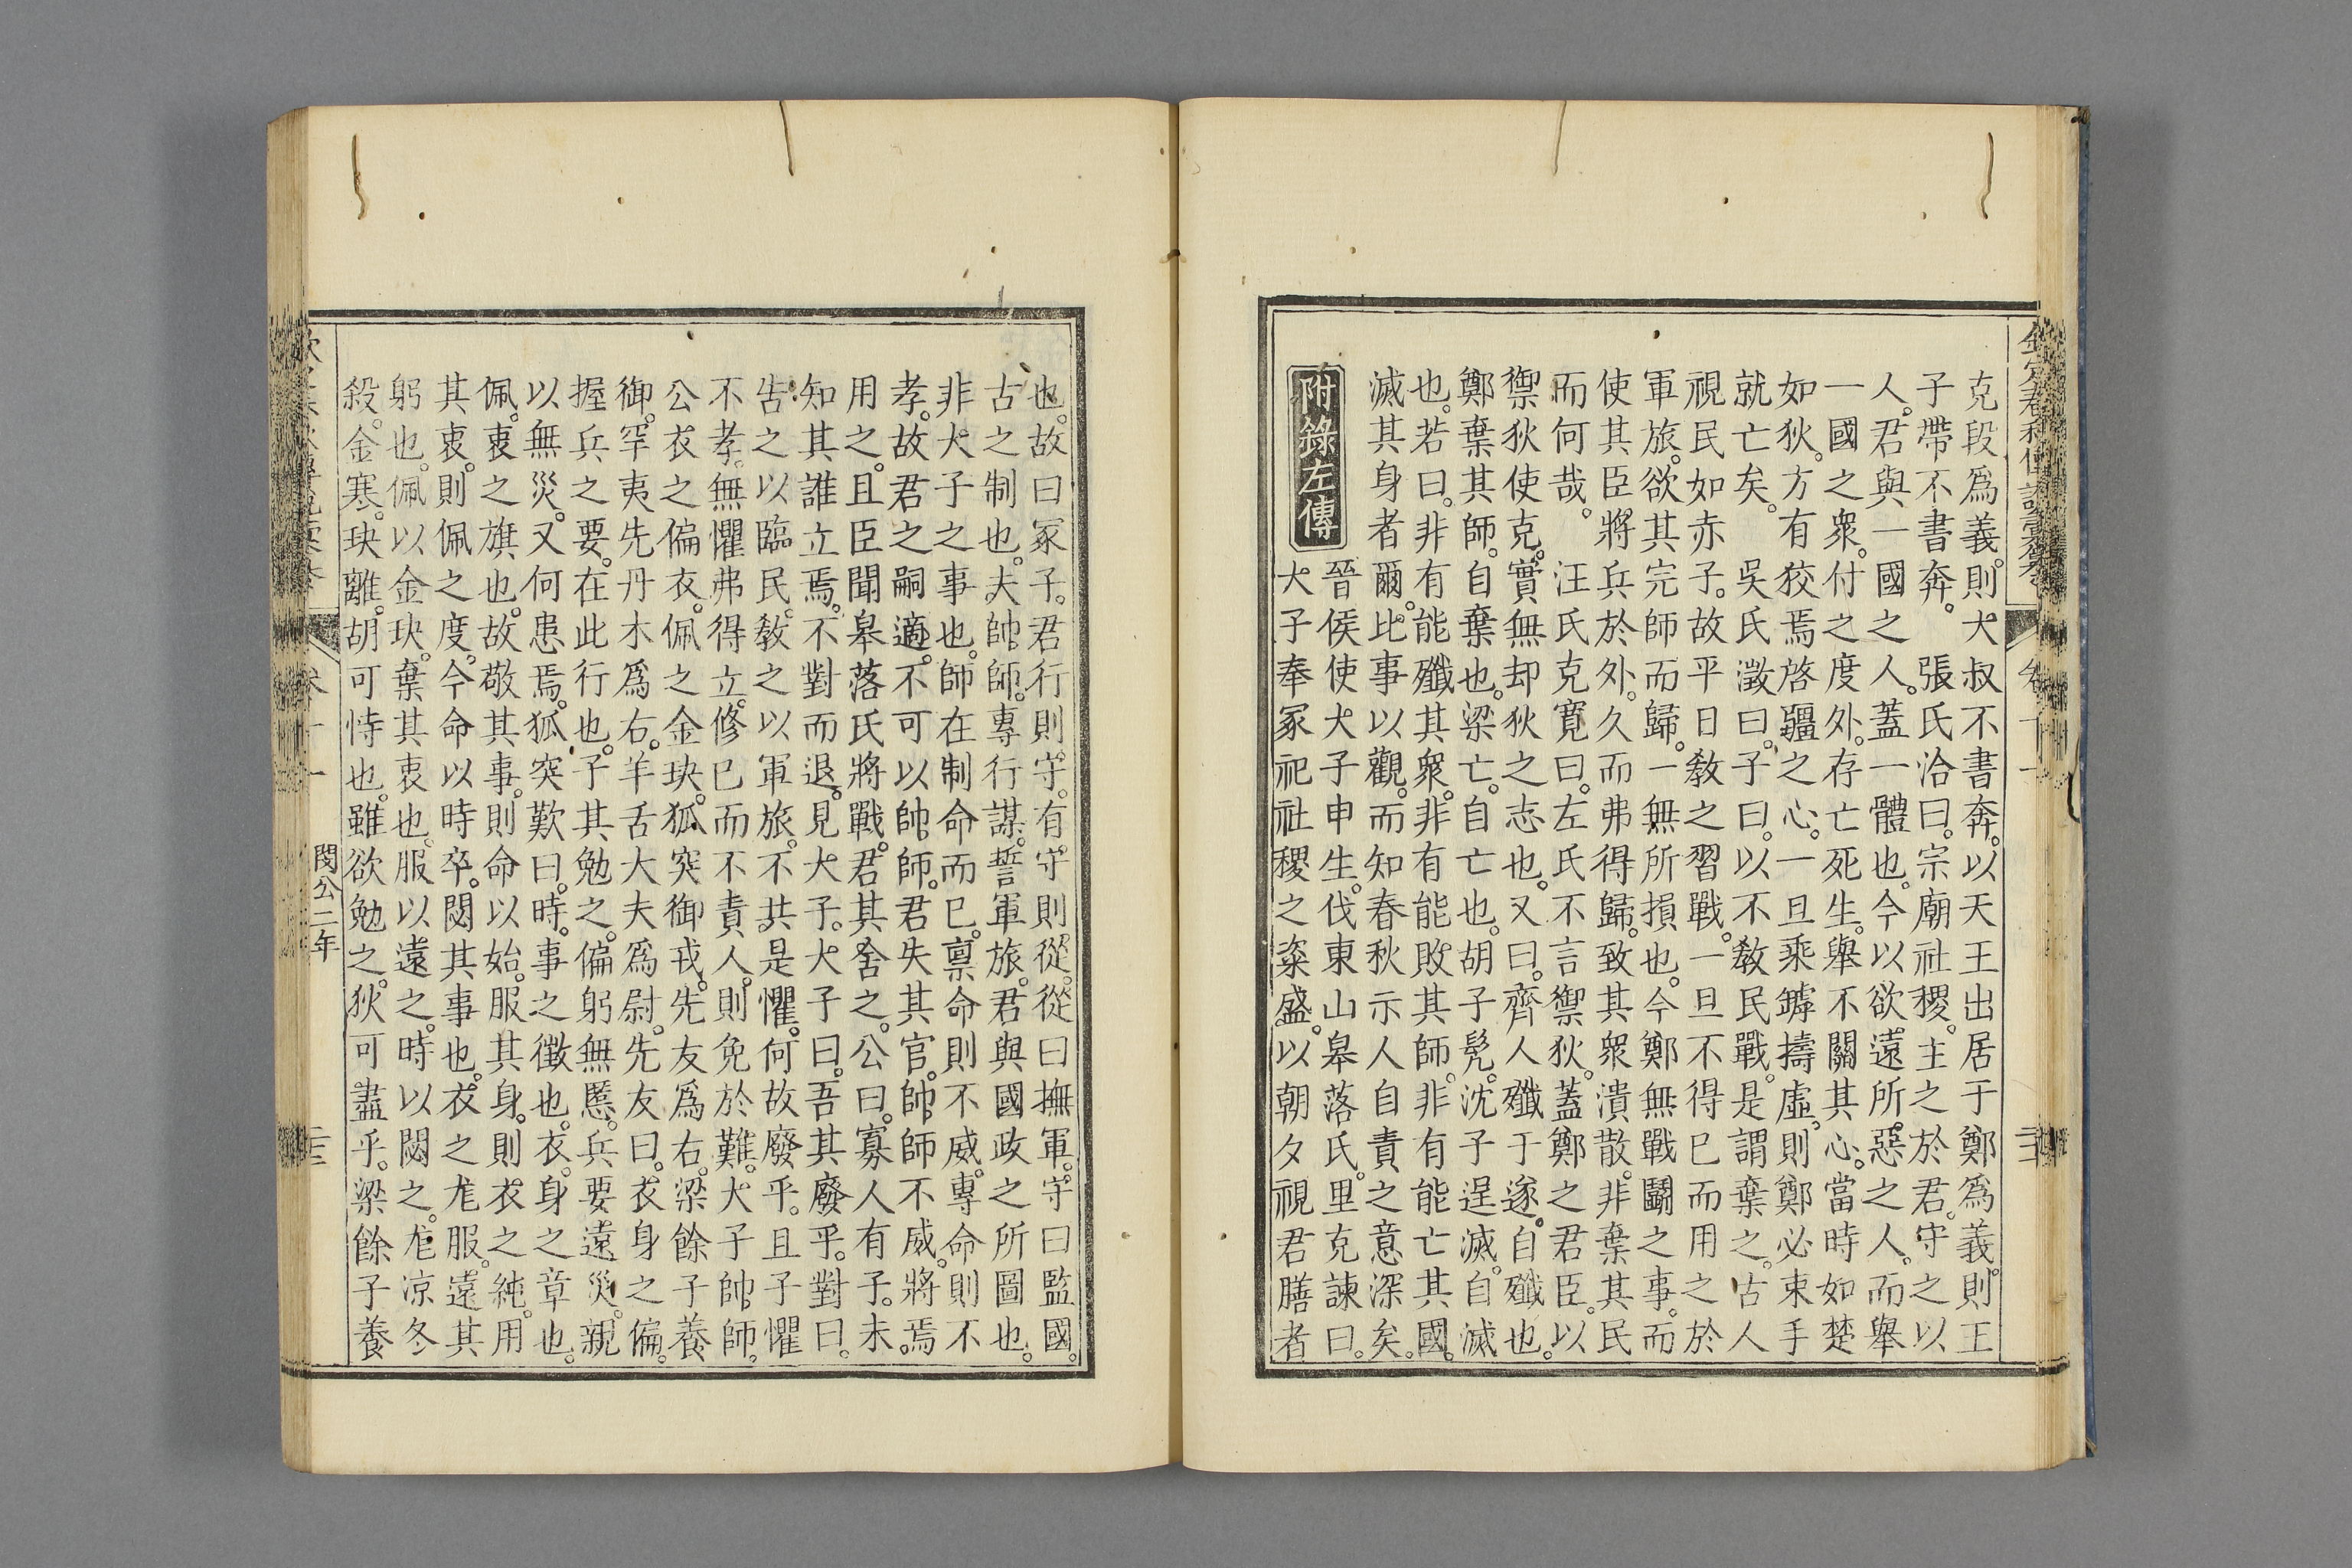 克段爲義。則大叔不書奔。以天王出居于鄭爲義。則王
子帶不書奔。 張氏洽曰。宗廟社稷。主之於君。守之以
人。君與一國之人。蓋一體也。今以欲遠所惡之人。而舉
一國之衆。付之度外。存亡死生。舉不關其心。當時如楚
如狄。方有狡焉啓疆之心。一旦乘罅擣虛。則鄭必束手
就亡矣。 吳氏澂曰。子曰。以不敎民戰。是謂棄之。古人
視民如赤子。故平日敎之習戰。一旦不得已而用之於
軍旅。欲其完師而歸。一無所損也。今鄭無戰鬬之事。而
使其臣將兵於外。久而弗得歸。致其衆潰散。非棄其民
而何哉。 汪氏克寬曰。左氏不言禦狄。蓋鄭之君臣。以
禦狄使克。實無却狄之志也。又曰。齊人殲于遂。自殲也。
鄭棄其師。自棄也。梁亡。自亡也。胡子髠。沈子逞滅。自滅
也。若曰。非有能殲其衆。非有能敗其師。非有能亡其國。
滅其身者爾。比事以觀。而知春秋示人自責之意深矣。
附錄左傳 晉侯使大子申生。伐東山皋落氏。里克諫曰。
大子奉冢祀社稷之粢盛。以朝夕視君膳者
也。故曰冢子。君行則守。有守則從。從曰撫軍。守曰監國。
古之制也。夫帥師。專行謀。誓軍旅。君與國政之所圖也。
非大子之事也。師在制命而已。稟命則不威。專命則不
孝。故君之嗣適。不可以帥師。君失其官。帥師不威。將焉
用之。且臣聞皋落氏將戰。君其舍之。公曰。寡人有子。未
知其誰立焉。不對而退。見大子。大子曰。吾其廢乎。對曰。
告之以臨民。敎之以軍旅。不共是懼。何故廢乎。且子懼
不孝。無懼弗得立。修已而不責人。則免於難。大子帥師。
公衣之偏衣。佩之金玦。狐突御戎。先友爲右。梁餘子養
御。罕夷先丹木爲右。羊舌大夫爲尉。先友曰。衣身之偏。
握兵之要。在此行也。子其勉之。偏躬無慝。兵要遠災。親
以無災。又何患焉。狐突歎曰。時。事之徵也。衣。身之章也。
佩。衷之旗也。故敬其事。則命以始。服其身。則衣之純。用
其衷。則佩之度。今命以時卒。閟其事也。衣之尨服。遠其
躬也。佩以金玦。棄其衷也。服以遠之。時以閟之。尨凉冬
殺。金寒。玦離。胡可恃也。雖欲勉之。狄可盡乎。梁餘子養
閔公二年